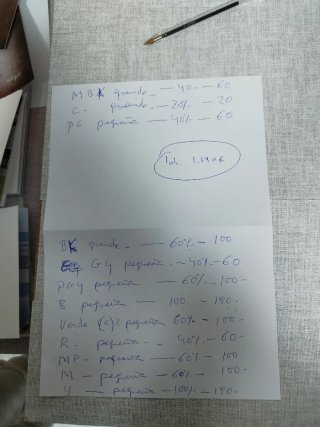 MBK grande. — 40.- — 60
C. grande. — 20% — 20
PC pequeña — 40% — 60
Tot. 1.140€
BK grande. — 60% — 100
GY pequeña. — 40% — 60
PGY pequeña — 60% — 100.-
B pequeña — 100 — 190.-
Verde (C)? pequeña 60% — 100.-
R. - pequeña — 40% — 60.-
MP - pequeña — 60% — 100
M - pequeña — 60% — 100.-
Y - pequeña — 100% — 190.-